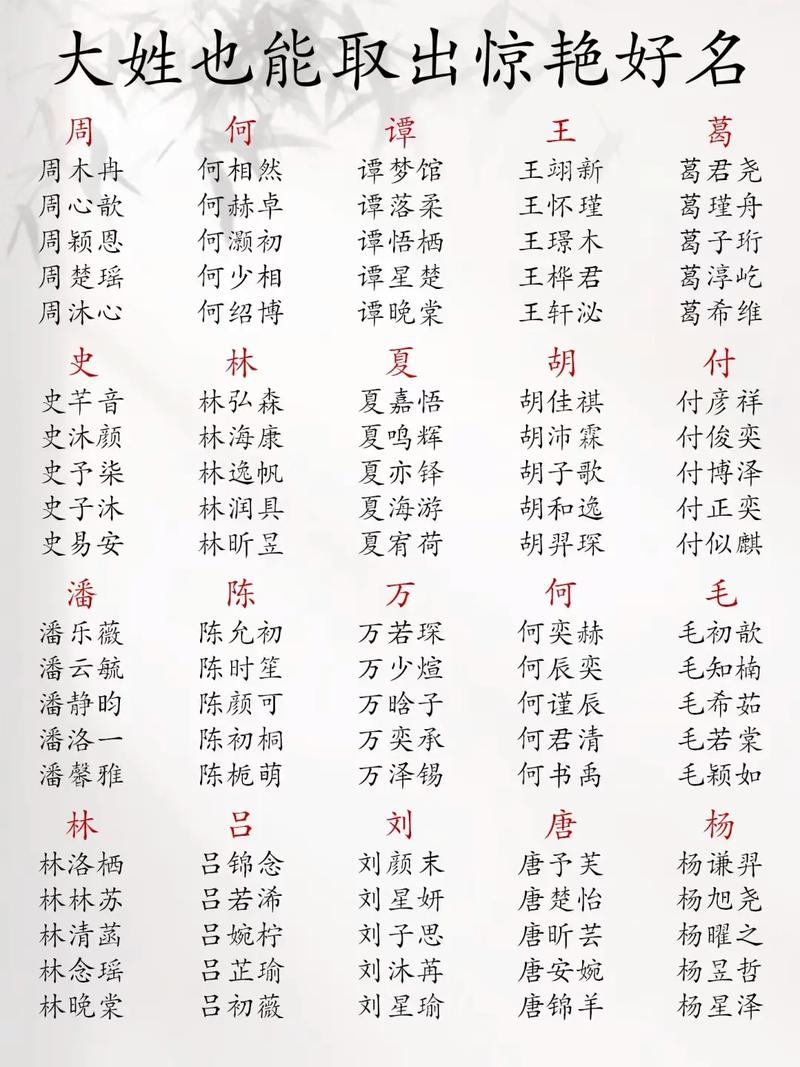 大姓也能取出惊艳好名
周 何 谭 王 葛
周木冉 何相然 谭梦馆 王翊新 葛君尧
周心歆 何赫卓 谭落柔 王怀瑾 葛瑾舟
周颖恩 何灏初 谭悟栖 王璟木 葛子珩
周楚瑶 何少相 谭星楚 王桦君 葛淳屹
周沐心 何绍博 谭晚棠 王轩泌 葛希维
史 林 夏 胡 付
史芊音 林弘森 夏嘉悟 胡佳祺 付彦祥
史沐颜 林海康 夏鸣辉 胡沛霖 付俊奕
史予柒 林逸帆 夏亦铎 胡子歌 付博泽
史子沐 林润具 夏海游 胡和逸 付正奕
史易安 林昕昱 夏宥荷 胡羿琛 付似麒
潘 陈 万 何 毛
潘乐薇 陈允初 万若琛 何奕赫 毛初歆
潘云毓 陈时笙 万少煊 何辰奕 毛知楠
潘静昀 陈颜可 万晗子 何谨辰 毛希茹
潘洛一 陈初桐 万奕承 何君清 毛若棠
潘馨雅 陈栀萌 万泽锡 何书禹 毛颖如
林 吕 刘 唐 杨
林洛栖 吕锦念 刘颜末 唐予芙 杨谦羿
林林苏 吕若浠 刘星妍 唐楚怡 杨旭尧
林清菡 吕婉柠 刘子思 唐昕芸 杨曜之
林念瑶 吕芷瑜 刘沐苒 唐安婉 杨昱哲
林晚棠 吕初薇 刘星瑜 唐锦羊 杨星泽